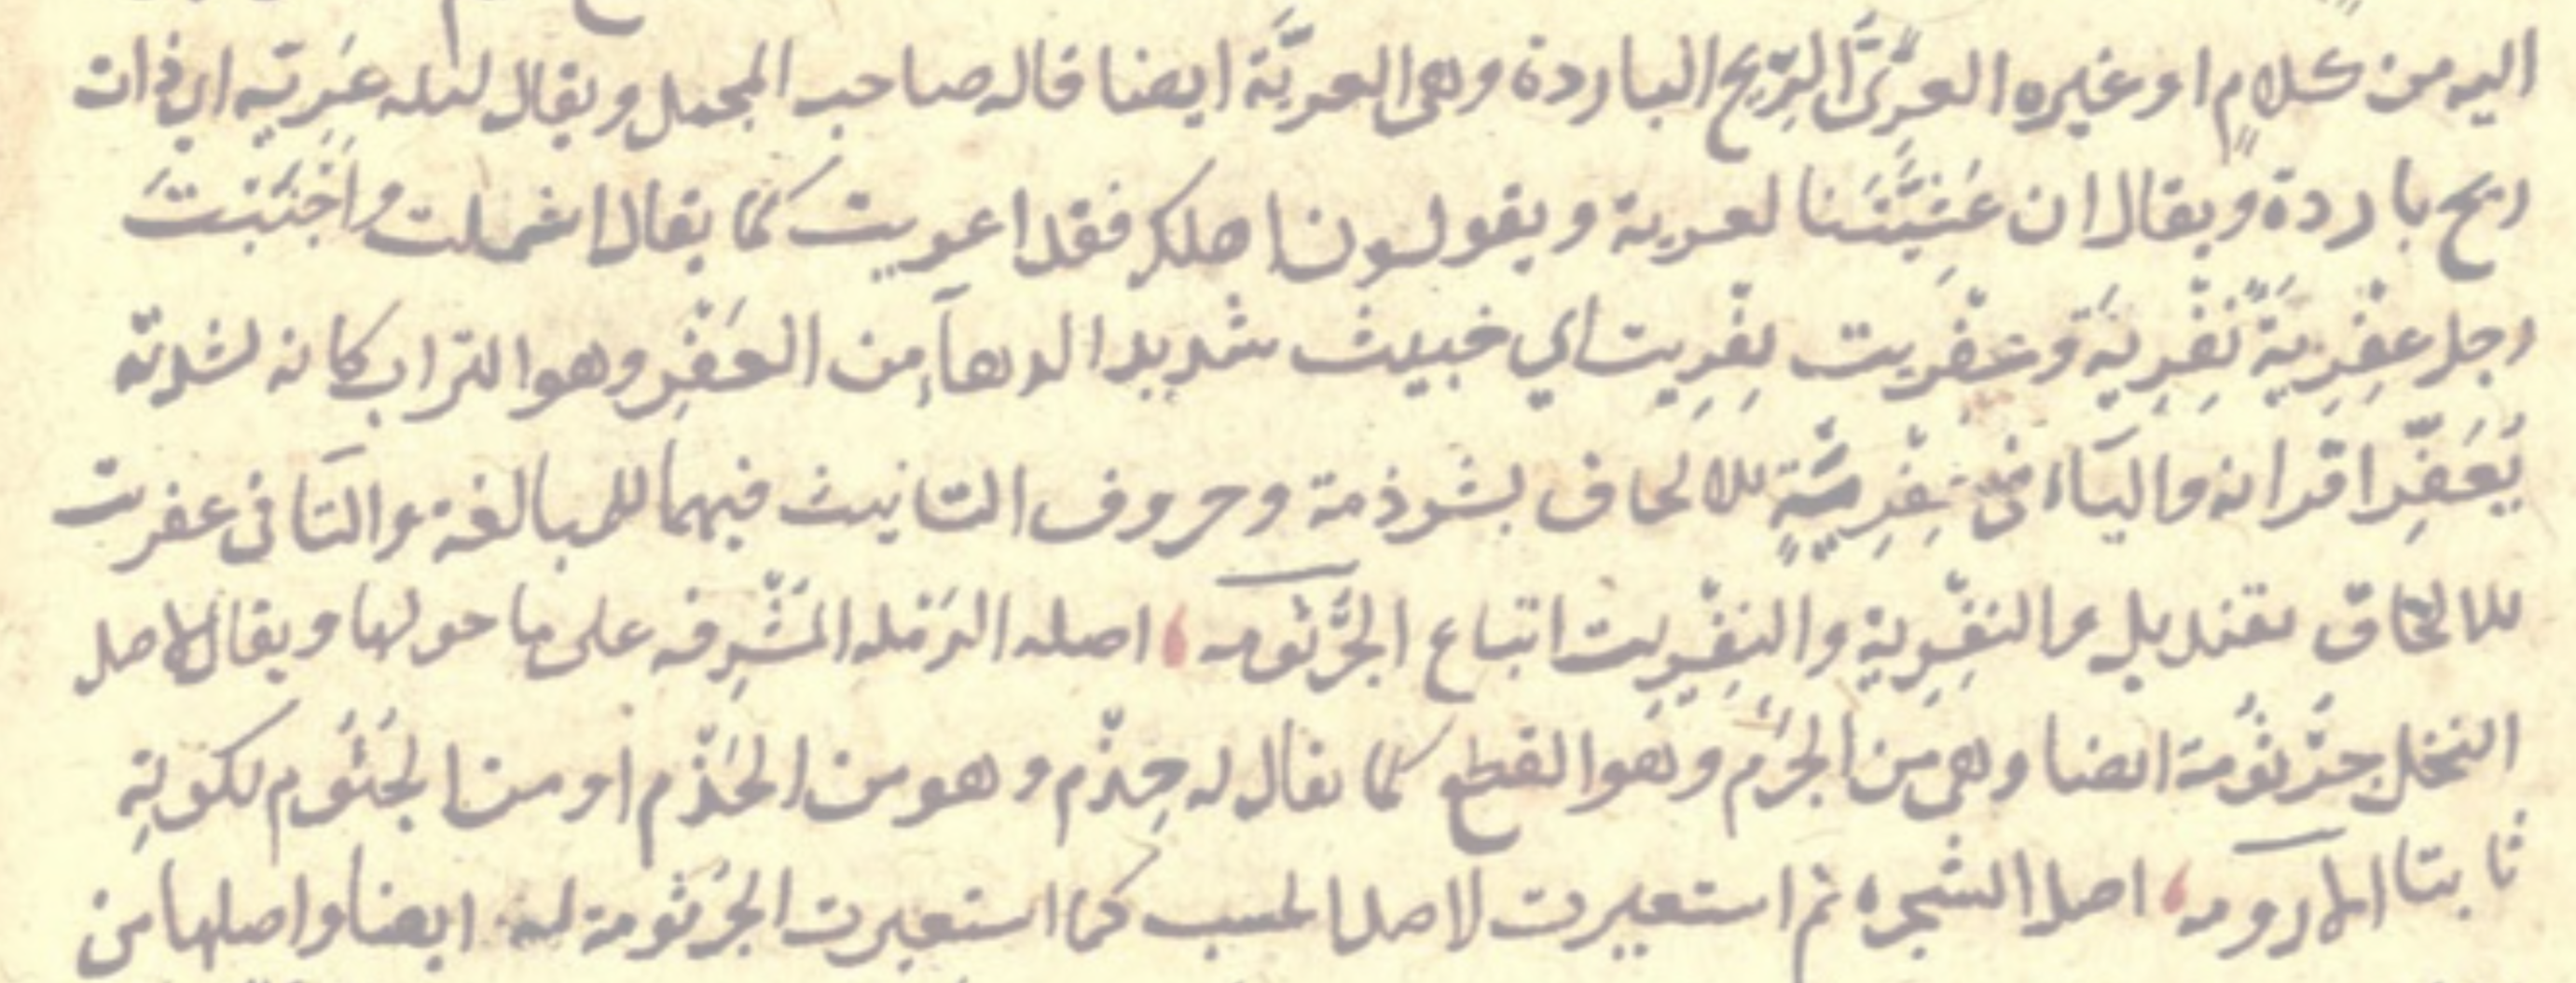 اليه من كلامٍ او غيره العرِىُّ الرّيح الباردة وهى العريَّة ايضا قاله صاحب المجمل ويقال ليله عَرِيّه اي ذات
ريح باردة ويقال ان عَشِيَّتَنا لعرية ويقولون اهلك فقد اعريت كما يقال اشملت واَجْنَبْتَ
رجل عِفْرِيَةٌ نِفْرِيَة وعفريت نِفْرِيت اي خبيث شديد الدهآءِ من العَفْرِ وهو التراب كانه لشدته
يُعَفِّر اقرانه والياء فى عِفْرِيَةٍ للالحاق بشرذمة وحروف التانيث فيهما للمبالغة والتآ فى عفريت
للالحاق بقنديل والنِفْرِية والنِفْرِيت اتباع الجُرْثومه اصله الرَمْله المُشْرِفه على ما حولها ويقال لاصل
النخل جُرْثُومة ايضا وهى من الجرْم وهو القطع كما يقال له جِذْم وهو من الجَذْم او من الجُثُوم لكونِهِ
ثابتا الارومه اصل الشجره ثم استعيرت لاصل الحسب كما استعيرت الجُرْثومة له ايضا واصلها من